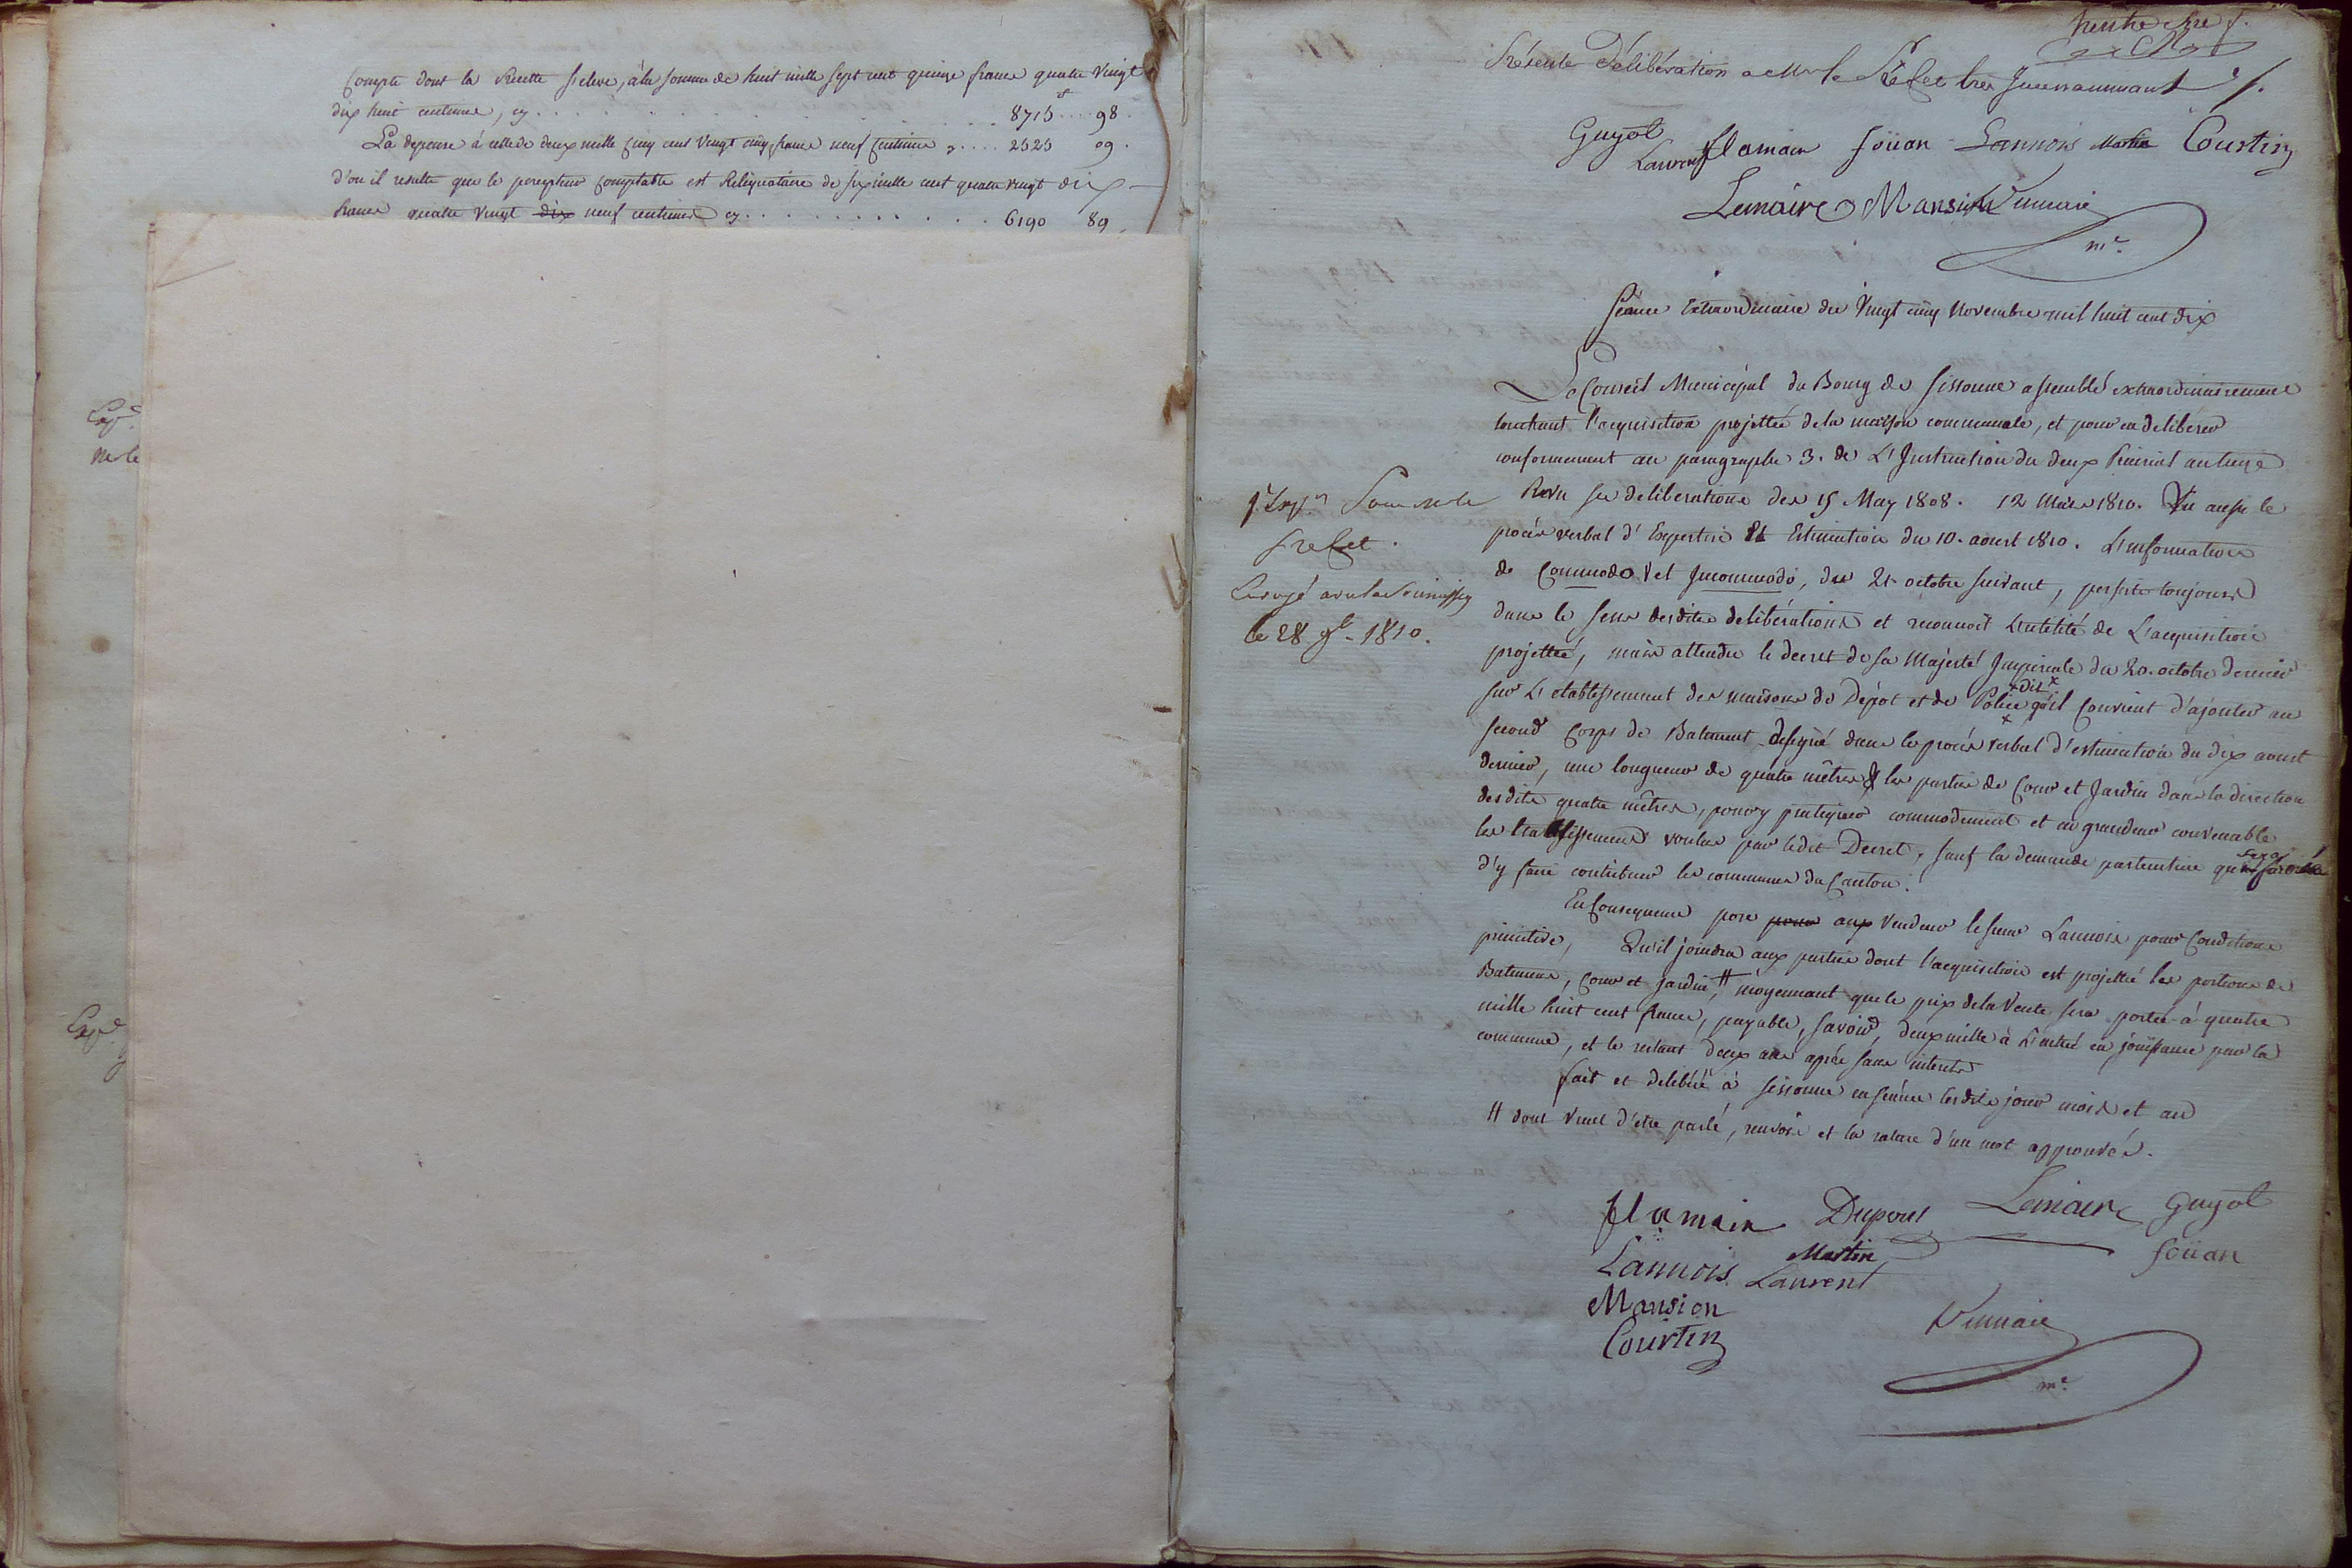 Compte dont la Recette s'eleve, à la somme de huit mille sept cent quinze francs quatre Vingt
dix huit centimes, cy . . . . 8715 f . . . 98 .
La depense à celle de deux mille cinq cent Vingt cinq francs neuf Centimes cy . . . . 2525 09 .
d'ou il resulte que le percepteur Comptable est Reliquataire de six mille cent quatre vingt dix
francs quatre Vingt dix neuf centimes cy . . . . . . . 6190 89
Exp.
Mr le
Exp.
trente
Présente Délibération a Mr le Préfet
Guyot Laurent flamain foüan Lannois Martin Courtin
Lemaire Mansion
me
Séance Extraordinaire du Vingt cinq Novembre mil huit cent dix
Le Conseil Municipal du Bourg de Sissonne assemblé extraordinairement
touchant l'acquisition projettée de la maison communale, et pour en deliberer
conformement au paragraphe 3. de L'Instruction du deux Prairial an treize
Revu ses deliberations des 15 May 1808. 12 Mars 1810. Vu aussi le
procès verbal d'Expertise Et Estimation du 10. aoust 1810. L'information
de Commodo Vel Incommodo, du 21 octobre suivant, persiste toujours
dans le sens desdites deliberations et reconnoit L'utilité de L'acquisition
projettée, mais attendu le decret de sa Majesté Imperiale du 20. octobre dernier
sur L'etablissement des maisons de Dépot et de Police x Dit x qu'il Convient d'ajouter au
second Corps de Batiment designé dans le procès verbal d'estimation du dix aoust
dernier, une longueur de quatre mètres & les parties de Cour et Jardin dans la direction
desdits quatre mètres, pour y pratiquer commodement et en grandeur convenable
les Etablissements voulus par ledit Decret, sauf la demande particuliere qui sera
d'y faire contribuer les communes du Canton.
En Consequence pose pour aux Vendeur le sieur Lannois pour Conditions
primitive, Qu'il joindra aux parties dont l'acquisition est projettée les portions de
Batiment, Cour et Jardin, # moyennant que le prix de la Vente sera portée à quatre
mille huit cent francs, payable, savoir, deux mille à L'entrée en jouissance par la
commune, et le restant deux ans après sans interets
fait et deliberé à Sissonne en séance lesdits jour mois et an
# dont Vient d'etre parlé, renvoi et la rature d'un mot approuvée.
1 Exp.n Pour Mr le
Préfet.
Envoyé avec la Soumission
le 28 9bre 1810.
flamain Dupont Lemaire Guyot
Lannois Martin Laurent foüan
Mansion
Courtin
me